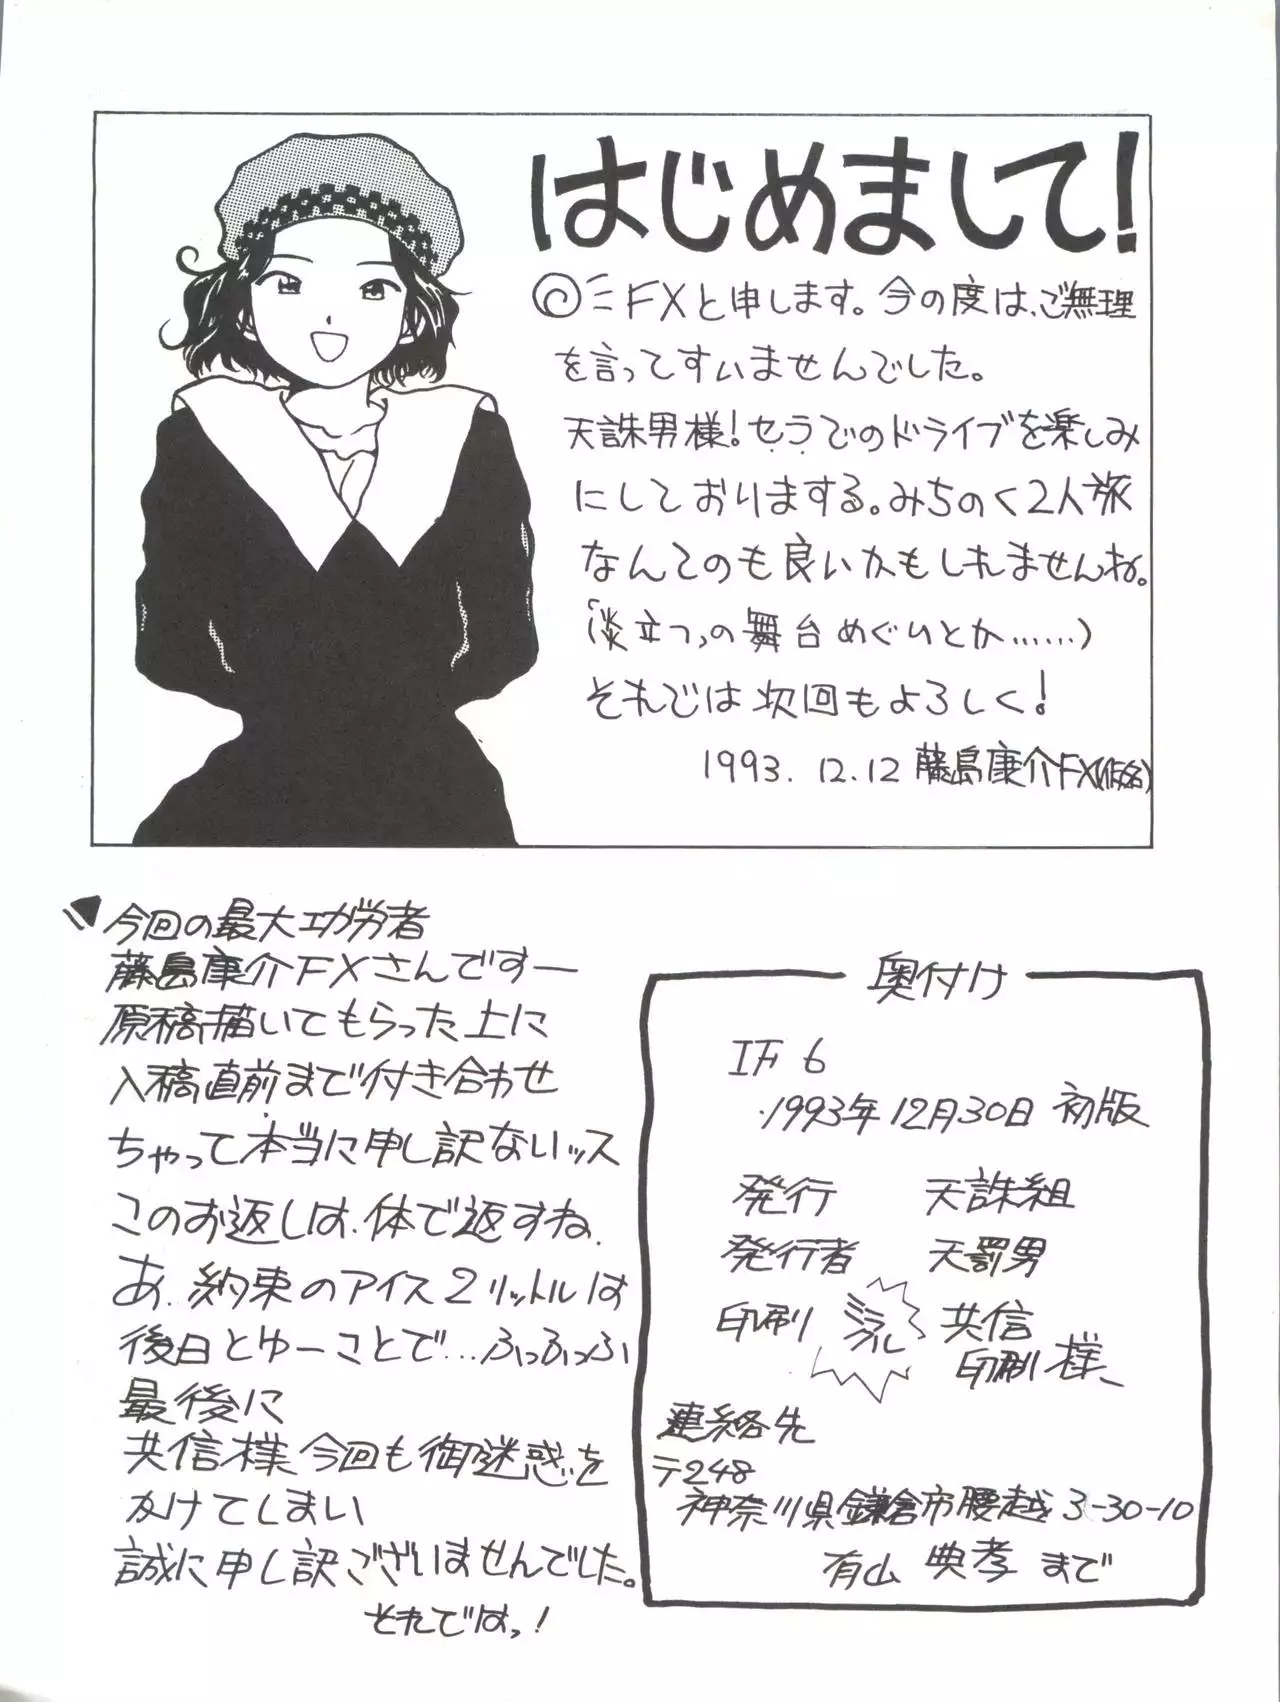 はじめまして!
FXと申します。今の度は、ご無理
を言ってすいませんでした。
天誅男様!セラでのドライブを楽しみ
にしておりまする。みちのく2人旅
なんてのも良いかもしれませんね。
(淡立つの舞台めぐりとか……)
それでは次回もよろしく!
1993.12.12 藤島康介FX(仮名)
今回の最大功労者
藤島康介FXさんですー
原稿描いてもらった上に
入稿直前まで付き合わせ
ちゃって本当に申し訳ないッス
このお返しは、体で返すね、
あ、約束のアイス2リットルは
後日とゆーことで…ふっふっふ
最後に
共信様今回も御迷惑を
かけてしまい
誠に申し訳ございませんでした。
それではっ!
奥付け
IF 6
1993年12月30日 初版
発行 天誅組
発行者 天罰男
印刷 ミラクル 共信
印刷様
連絡先
〒248
神奈川県鎌倉市腰越3-30-10
有山 典孝 まで